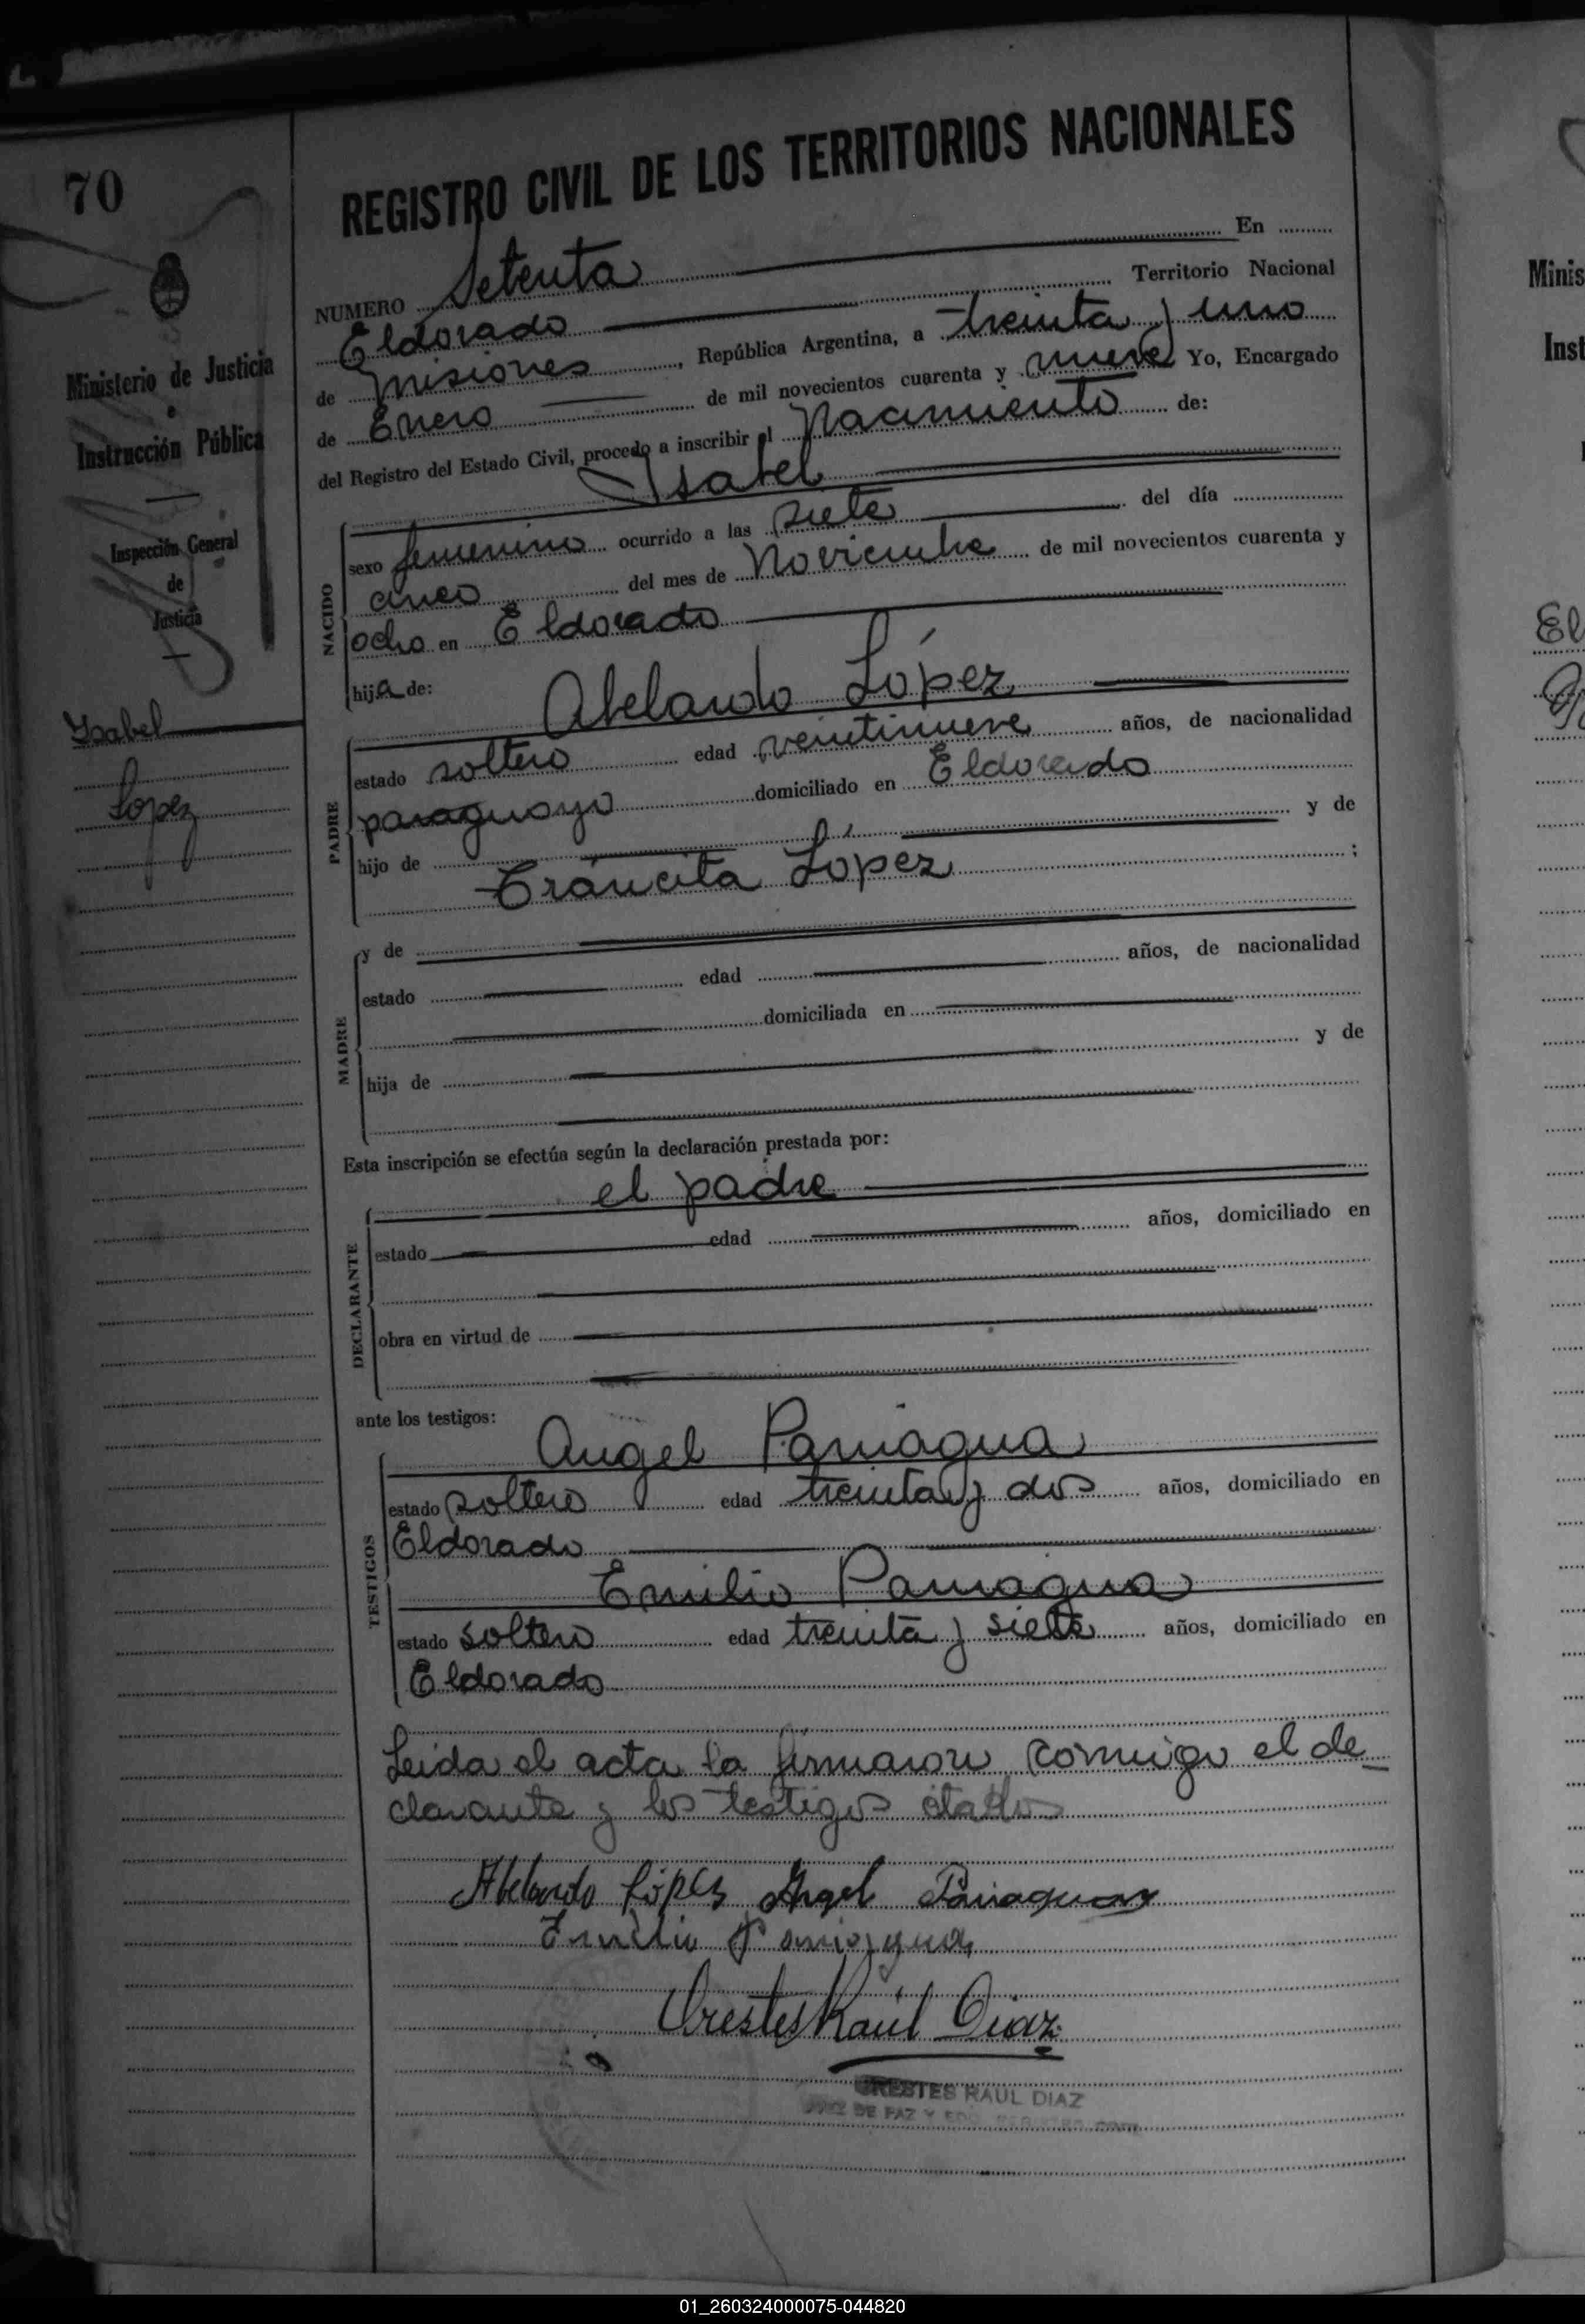 70
Ministerio de Justicia
e
Instrucción Pública
Inspección General
de
Justicia
Ysabel
Lopez
REGISTRO CIVIL DE LOS TERRITORIOS NACIONALES
NUMERO Setenta En
Eldorado Territorio Nacional
de Misiones, República Argentina, a treinta y uno
de Enero de mil novecientos cuarenta y nueve Yo, Encargado
del Registro del Estado Civil, procedo a inscribir el Nacimiento de:
NACIDO
Ysabel
sexo femenino ocurrido a las siete del día
cinco del mes de Noviembre de mil novecientos cuarenta y
ocho en Eldorado
hija de:
PADRE
Abelardo López
estado soltero edad veintinueve años, de nacionalidad
paraguayo domiciliado en Eldorado
hijo de y de
Tráncita López ;
MADRE
y de
estado edad años, de nacionalidad
domiciliada en
hija de y de
Esta inscripción se efectúa según la declaración prestada por:
DECLARANTE
el padre
estado edad años, domiciliado en
obra en virtud de
ante los testigos:
TESTIGOS
Angel Paniagua
estado soltero edad treinta y dos años, domiciliado en
Eldorado
Emilio Paniagua
estado soltero edad treinta y siete años, domiciliado en
Eldorado
Leida el acta la firmaron conmigo el de
clarante y los testigos citados
Abelardo López Angel Paniagua
Emilio Paniagua
Orestes Raúl Diaz
ORESTES RAUL DIAZ
JUEZ DE PAZ Y
Minis
Inst
El
01_260324000075-044820